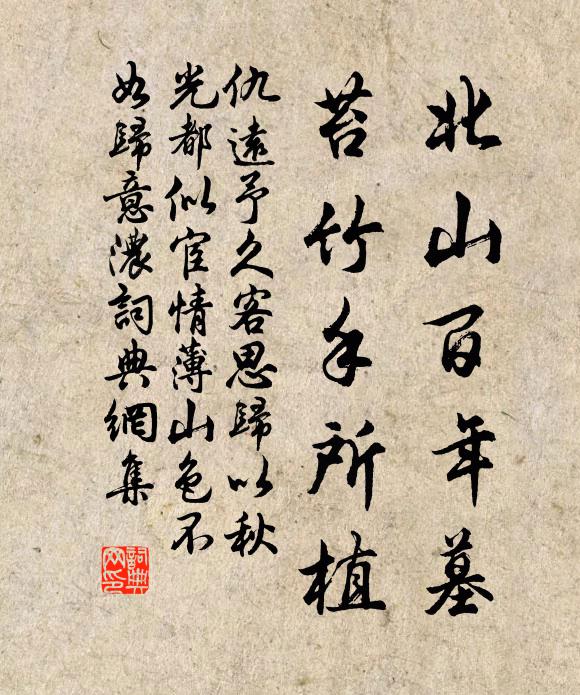 北山百年墓
苔竹手所植
仇遠予久客思歸以秋
光都似宦情薄山色不
如歸意濃詞典網集
詞典
网印